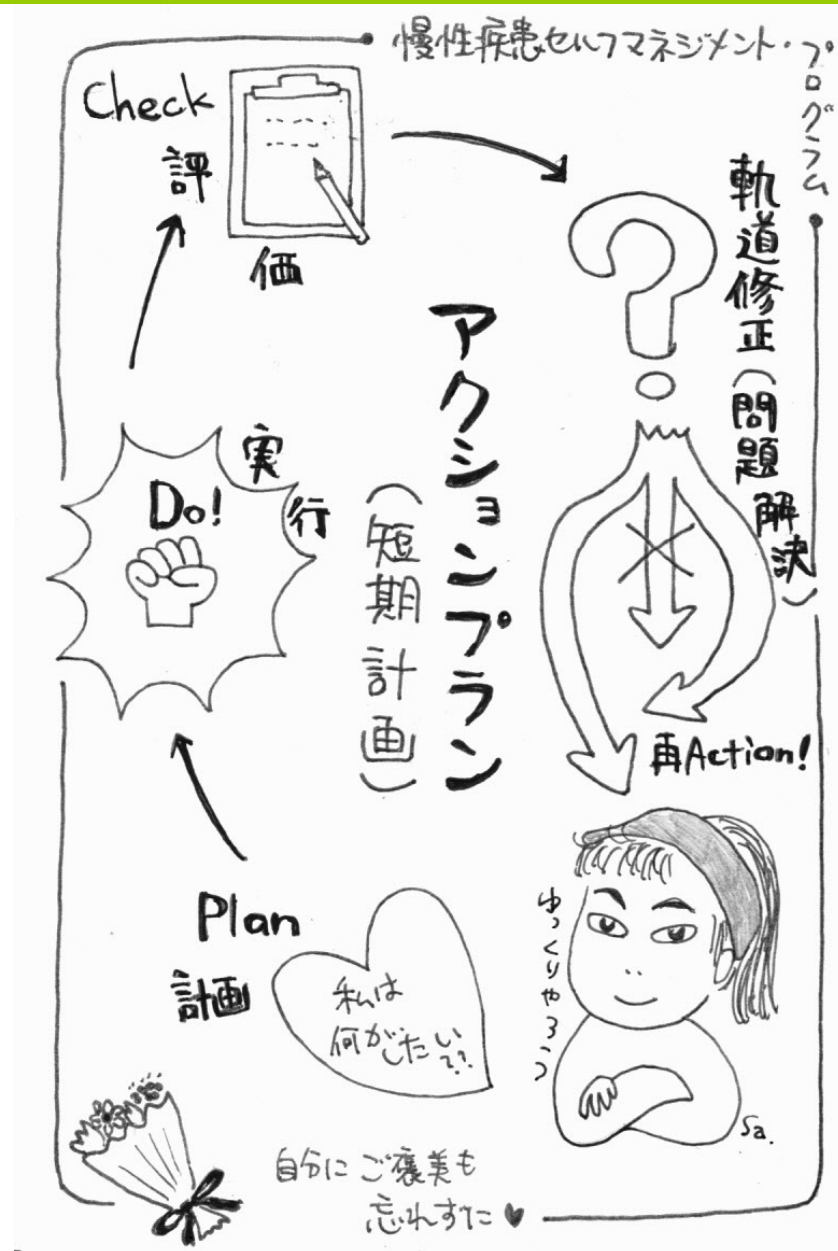 慢性疾患セルフマネジメント・プログラム
Check
評価
軌道修正(問題解決)
アクションプラン
(短期計画)
実行
Do!
再Action!
Plan
計画
私は
何がしたい??
ゆっくりやろう
Sa.
自分にご褒美も
忘れずに♥